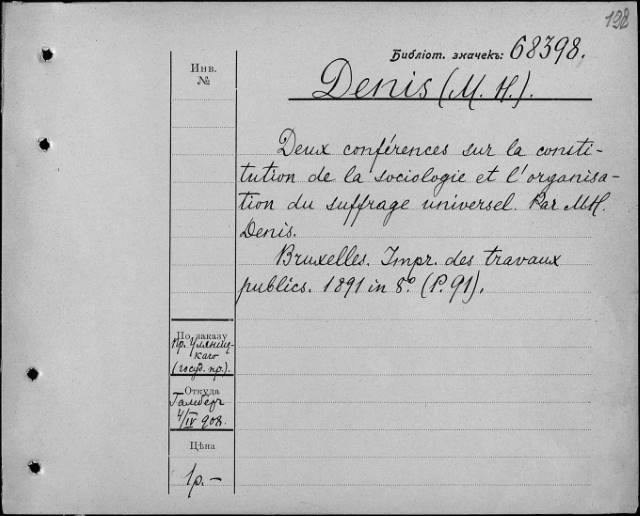 128
Библіот. значекъ: 68398.
Инв.
№
Denis (M. H.).
Deux conférences sur la consti-
tution de la sociologie et l'organisa-
tion du suffrage universel. Par M.H.
Denis.
Bruxelles. Impr. des travaux
publics. 1891 in 8º (P. 91).
По заказу
Пр. Уляниц-
каго
(госуд. пр.).
Откуда
4/IV 908.
Цѣна
1р.-